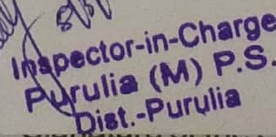 Inspector-in-Charge
Purulia (M) P.S.
Dist.-Purulia